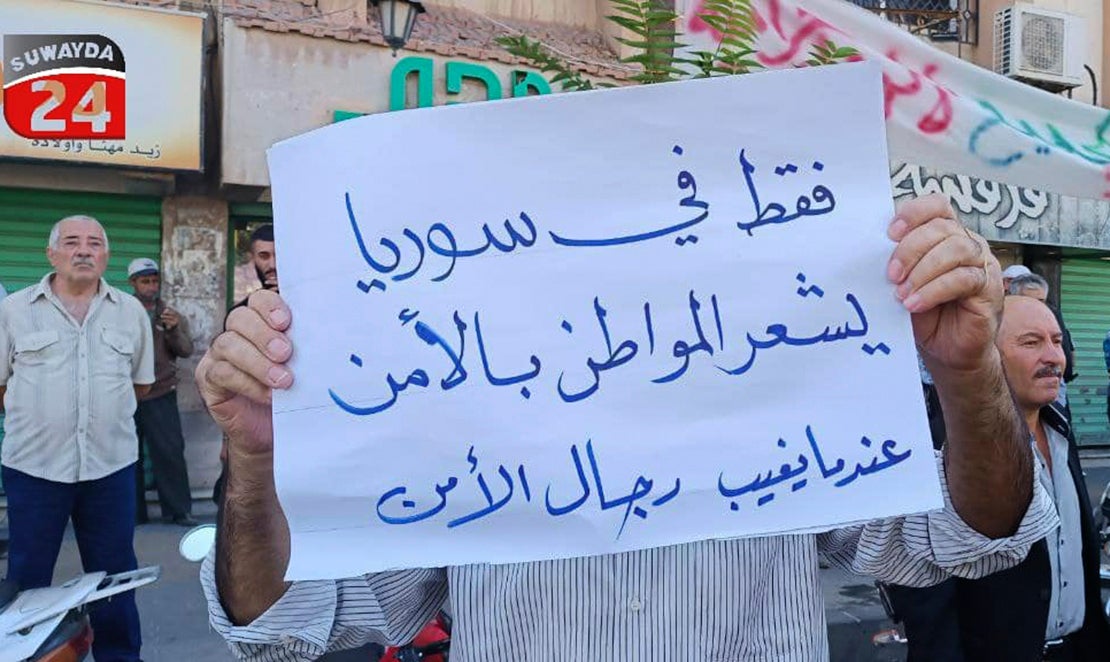 SUWAYDA
24
زيد مهنا وأولاده
فقط في سوريا
يشعر المواطن بالأمن
عندما يغيب رجال الأمن